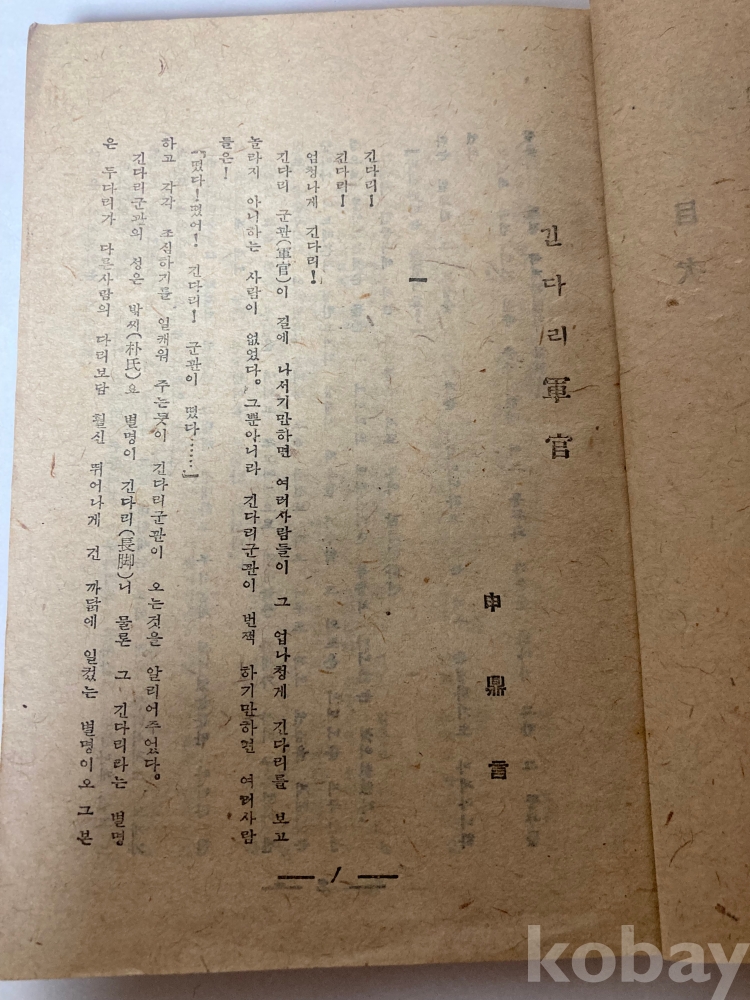 긴다리軍官
申鼎言
一
긴다리ㅣ
긴다리ㅣ
엄청나게 긴다리!
긴다리 군관(軍官)이 길에 나서기만하면 여러사람들이 그 업나청게 긴다리를 보고
놀라지 아니하는 사람이 없었다。그뿐아니라 긴다리군관이 번잭 하기만하면 여러사람
들은!
『떴다!떴어! 긴다리! 군관이 떴다……』
하고 각각 조심하기를 일깨워 주는듯이 긴다리군관이 오는것을 알리어주었다。
긴다리군관의 성은 박씨(朴氏)요 별명이 긴다리(長脚)니 물론 그 긴다리라는 별명
은 두다리가 다른사람의 다리보담 훨신 뛰어나게 긴 까닭에 일컸는 별명이오 그 본
— 1 —
目次
kobay